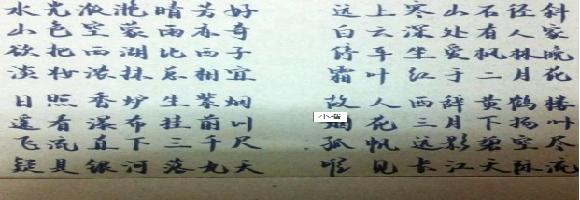 水光潋滟晴芳好
山色空蒙雨亦奇
欲把西湖比西子
淡妆浓抹总相宜
日照香炉生紫烟
遥看瀑布挂前川
飞流直下三千尺
疑是银河落九天
远上寒山石径斜
白云深处有人家
停车坐爱枫林晚
霜叶红于二月花
故人西辞黄鹤楼
烟花三月下扬州
孤帆远影碧空尽
唯见长江天际流